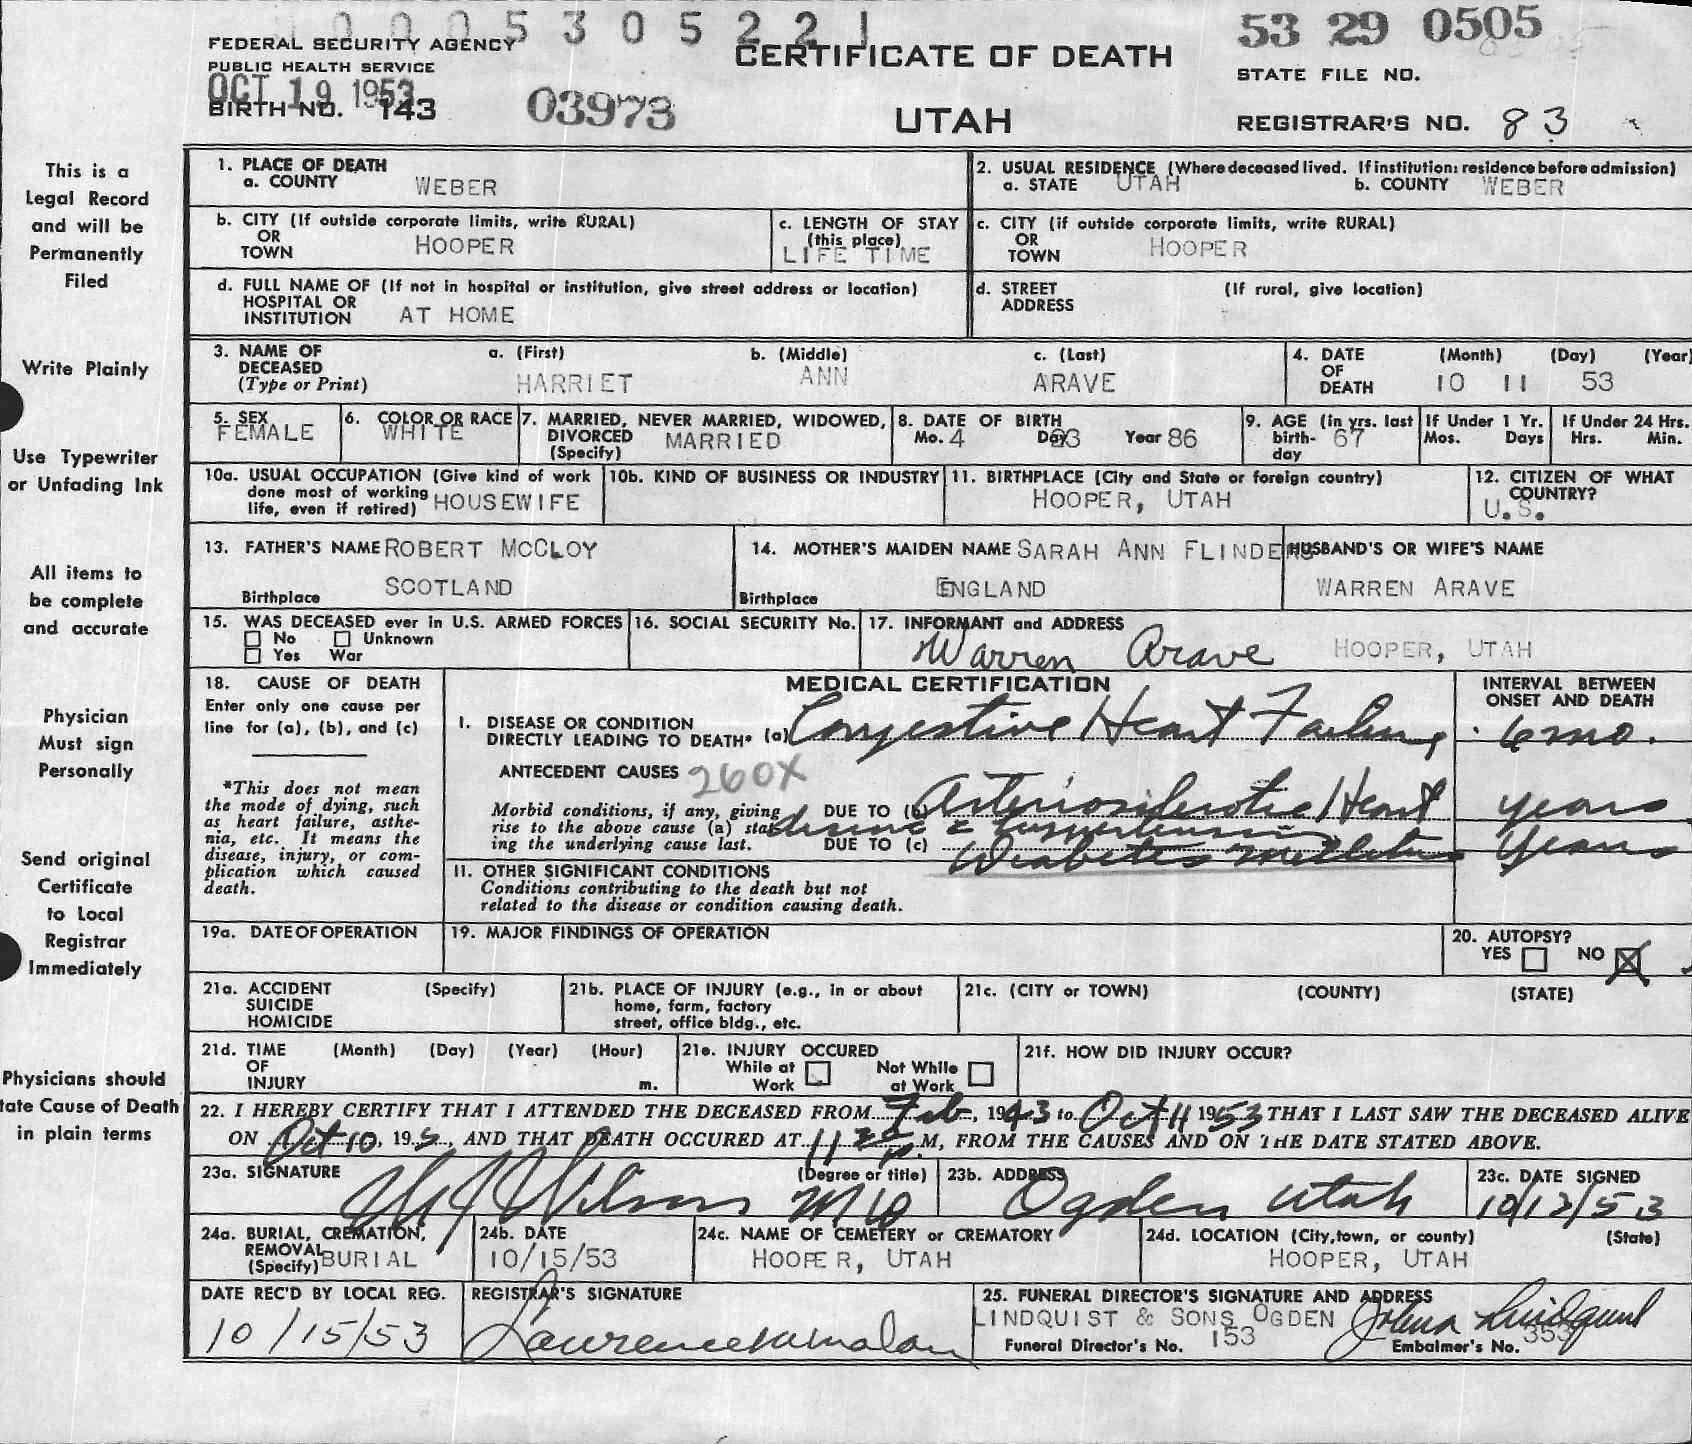 0005305221
53 29 0505
FEDERAL SECURITY AGENCY
PUBLIC HEALTH SERVICE
CERTIFICATE OF DEATH
STATE FILE NO.
OCT 19 1953
BIRTH NO. 143
03973
UTAH
REGISTRAR'S NO. 83
This is a
Legal Record
and will be
Permanently
Filed
Write Plainly
Use Typewriter
or Unfading Ink
All items to
be complete
and accurate
Physician
Must sign
Personally
Send original
Certificate
to Local
Registrar
Immediately
Physicians should
tate Cause of Death
in plain terms
1. PLACE OF DEATH
a. COUNTY WEBER
2. USUAL RESIDENCE (Where deceased lived. If institution: residence before admission)
a. STATE UTAH b. COUNTY WEBER
b. CITY (If outside corporate limits, write RURAL)
OR
TOWN HOOPER
c. LENGTH OF STAY
(this place)
LIFE TIME
c. CITY (if outside corporate limits, write RURAL)
OR
TOWN HOOPER
d. FULL NAME OF (If not in hospital or institution, give street address or location)
HOSPITAL OR
INSTITUTION AT HOME
d. STREET (If rural, give location)
ADDRESS
3. NAME OF DECEASED
(Type or Print)
a. (First) b. (Middle) c. (Last)
HARRIET ANN ARAVE
4. DATE OF DEATH (Month) (Day) (Year)
10 11 53
5. SEX
FEMALE
6. COLOR OR RACE
WHITE
7. MARRIED, NEVER MARRIED, WIDOWED,
DIVORCED MARRIED
(Specify)
8. DATE OF BIRTH
Mo. 4 Day 23 Year 86
9. AGE (in yrs. last
birth- 67
day
If Under 1 Yr.
Mos. Days
If Under 24 Hrs.
Hrs. Min.
10a. USUAL OCCUPATION (Give kind of work
done most of working
life, even if retired) HOUSEWIFE
10b. KIND OF BUSINESS OR INDUSTRY
11. BIRTHPLACE (City and State or foreign country)
HOOPER, UTAH
12. CITIZEN OF WHAT
COUNTRY?
U.S.
13. FATHER'S NAME ROBERT MCCLOY
Birthplace SCOTLAND
14. MOTHER'S MAIDEN NAME SARAH ANN FLINDERS
Birthplace ENGLAND
HUSBAND'S OR WIFE'S NAME
WARREN ARAVE
15. WAS DECEASED ever in U.S. ARMED FORCES
No Unknown
Yes War
16. SOCIAL SECURITY No.
17. INFORMANT and ADDRESS
Warren Arave HOOPER, UTAH
18. CAUSE OF DEATH
Enter only one cause per
line for (a), (b), and (c)
*This does not mean
the mode of dying, such
as heart failure, asthe-
nia, etc. It means the
disease, injury, or com-
plication which caused
death.
MEDICAL CERTIFICATION
INTERVAL BETWEEN
ONSET AND DEATH
I. DISEASE OR CONDITION
DIRECTLY LEADING TO DEATH* (a) Congestive Heart Failure 6 mo.
ANTECEDENT CAUSES 260X
Morbid conditions, if any, giving
rise to the above cause (a) stat-
ing the underlying cause last.
DUE TO (b) Arteriosclerotic Heart years
disease c hypertension
DUE TO (c) Diabetes Mellitus years
11. OTHER SIGNIFICANT CONDITIONS
Conditions contributing to the death but not
related to the disease or condition causing death.
19a. DATE OF OPERATION
19. MAJOR FINDINGS OF OPERATION
20. AUTOPSY?
YES NO X
21a. ACCIDENT (Specify)
SUICIDE
HOMICIDE
21b. PLACE OF INJURY (e.g., in or about
home, farm, factory
street, office bldg., etc.
21c. (CITY or TOWN) (COUNTY) (STATE)
21d. TIME (Month) (Day) (Year) (Hour)
OF
INJURY m.
21e. INJURY OCCURED
While at Work Not While at Work
21f. HOW DID INJURY OCCUR?
22. I HEREBY CERTIFY THAT I ATTENDED THE DECEASED FROM Feb, 1943 to Oct 11 1953 THAT I LAST SAW THE DECEASED ALIVE
ON Oct 10, 195, AND THAT DEATH OCCURED AT 11 P.M, FROM THE CAUSES AND ON THE DATE STATED ABOVE.
23a. SIGNATURE (Degree or title)
Wilson MD
23b. ADDRESS
Ogden Utah
23c. DATE SIGNED
10/12/53
24a. BURIAL, CREMATION,
REMOVAL
(Specify) BURIAL
24b. DATE
10/15/53
24c. NAME OF CEMETERY or CREMATORY
HOOPER, UTAH
24d. LOCATION (City, town, or county) (State)
HOOPER, UTAH
DATE REC'D BY LOCAL REG.
10/15/53
REGISTRAR'S SIGNATURE
Lawrence Malan
25. FUNERAL DIRECTOR'S SIGNATURE AND ADDRESS
LINDQUIST & SONS OGDEN Lindquist
Funeral Director's No. 153 Embalmer's No. 353